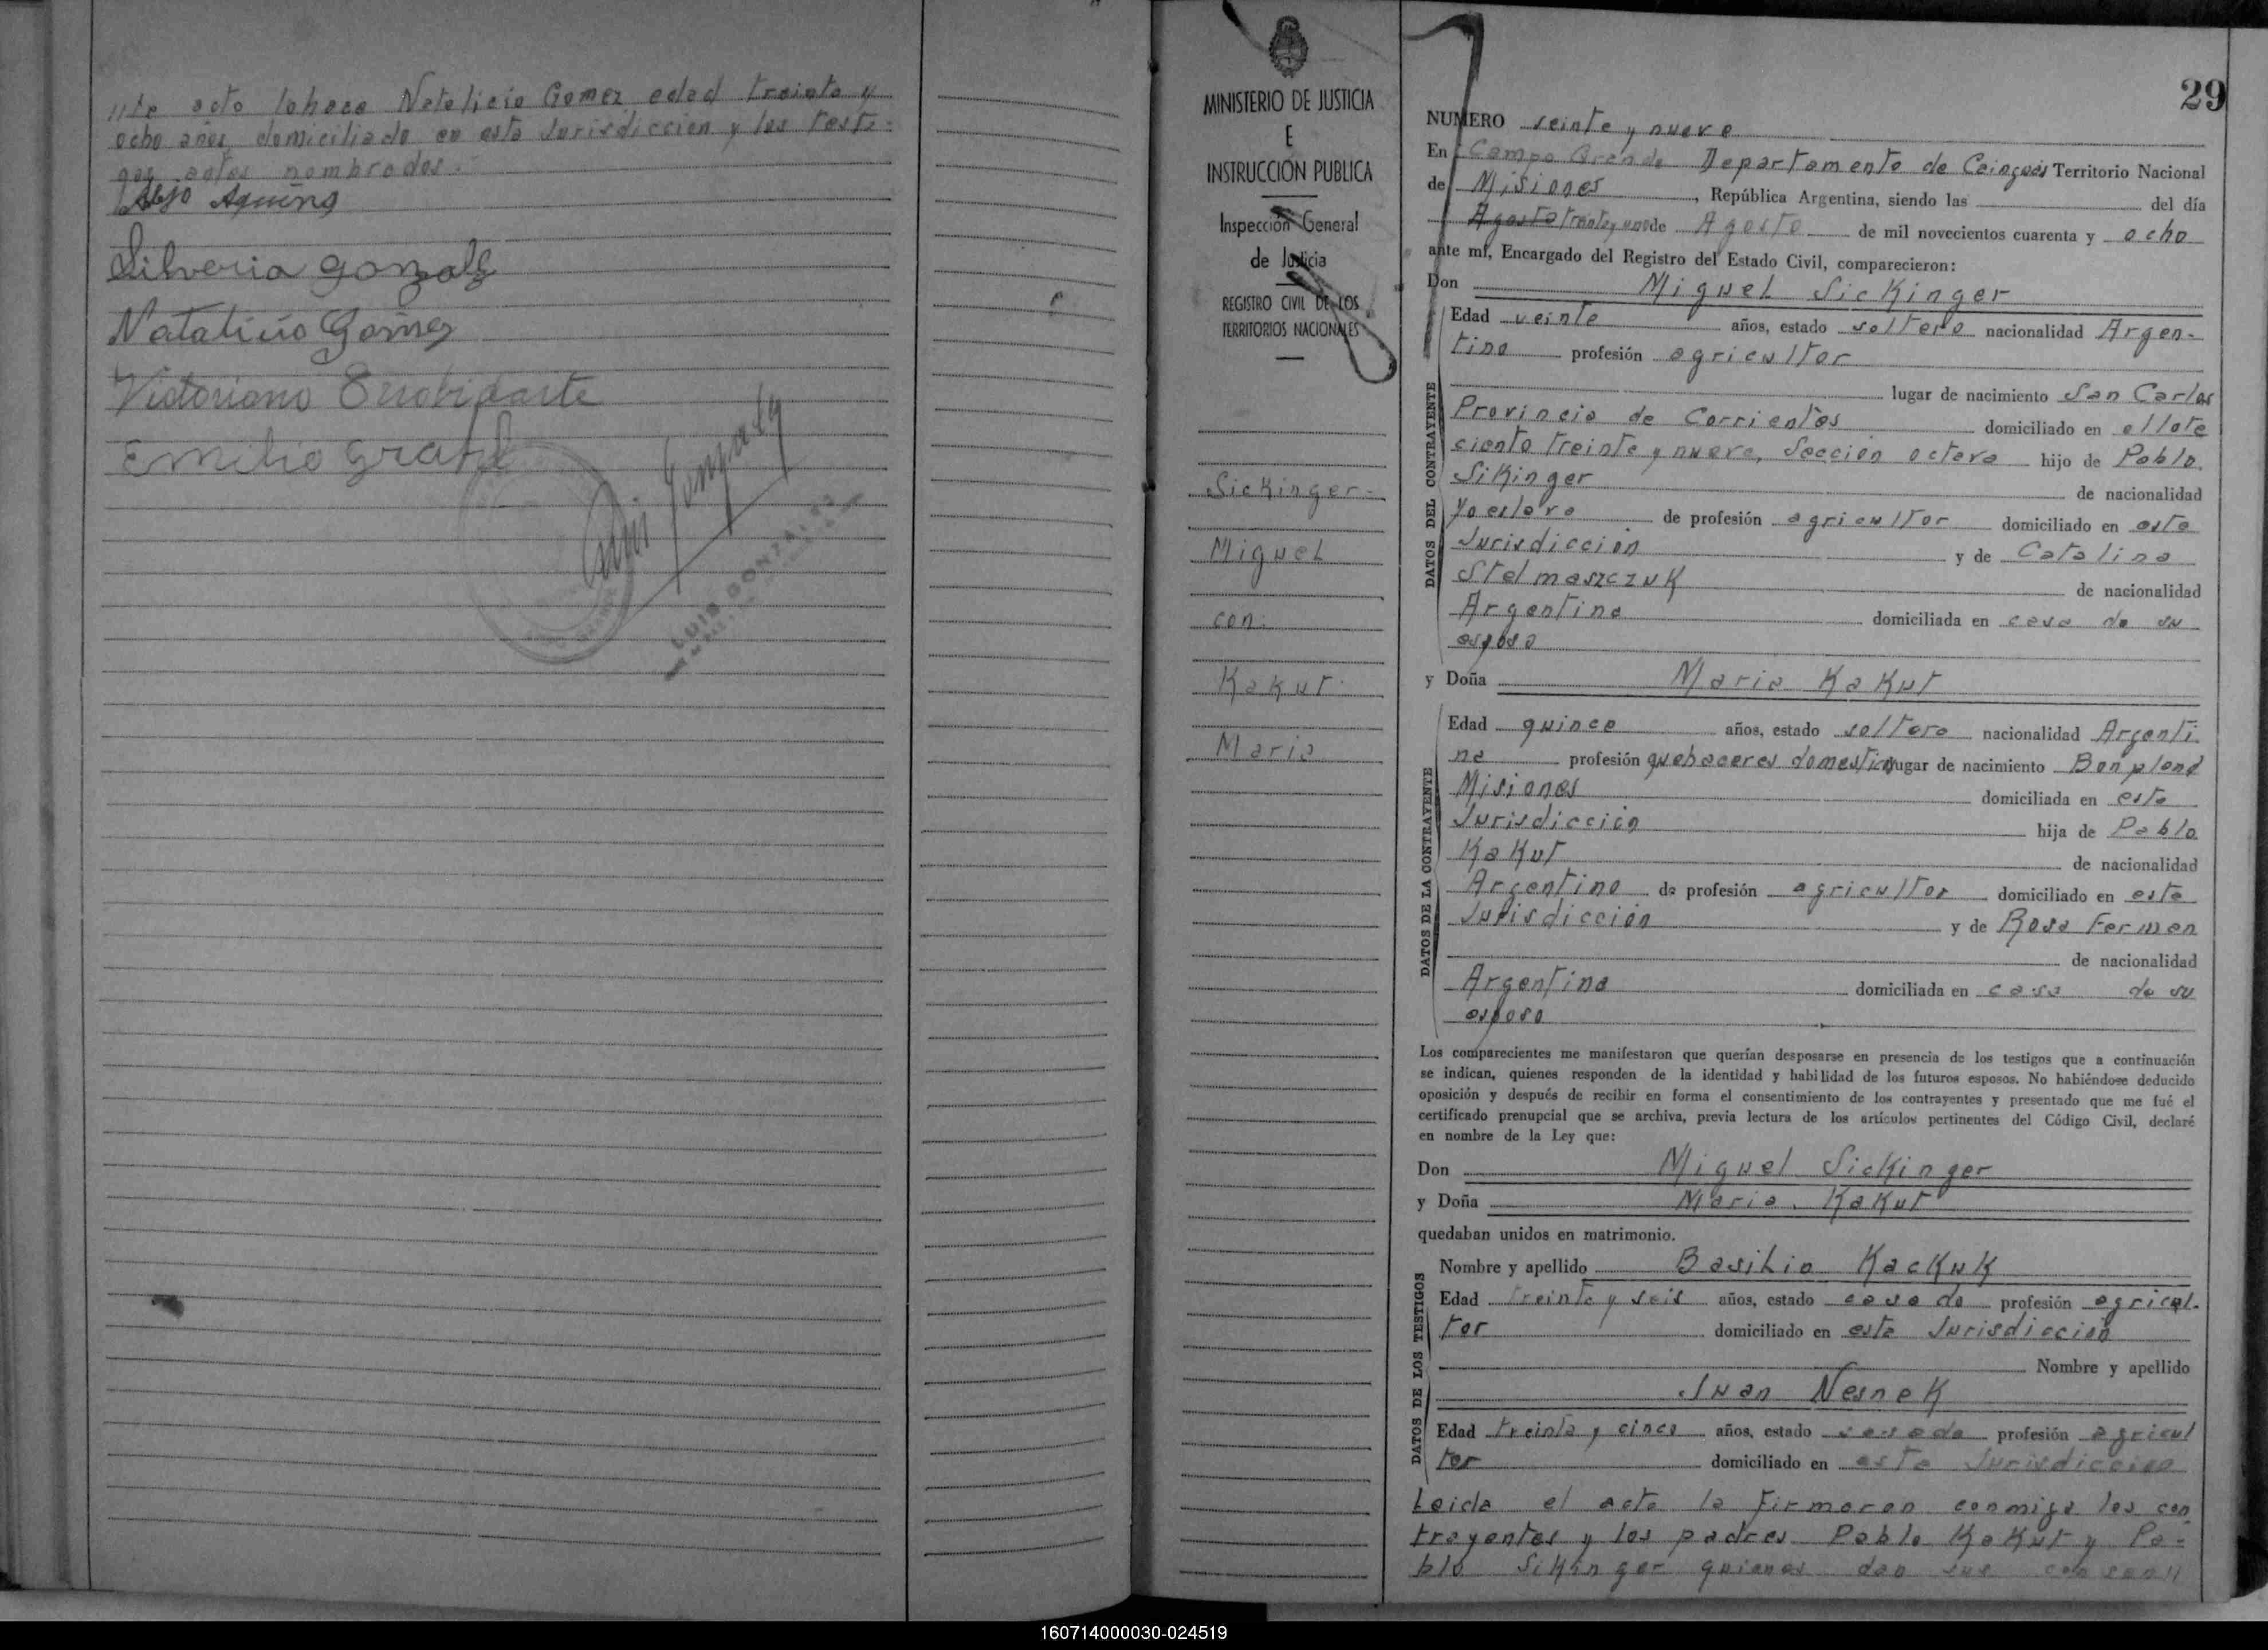 //te acto lohace Natalicio Gomez edad treinta y
ocho años, domiciliado en esta Jurisdiccion y los testi-
gos antes nombrados.-
Alejo Aquino
Silveria Gonzalez
Natalicio Gomez
Victoriano
Emilio Graff
LUIS GONZALEZ
MINISTERIO DE JUSTICIA
E
INSTRUCCIÓN PUBLICA
Inspección General
de Justicia
REGISTRO CIVIL DE LOS
TERRITORIOS NACIONALES
Sickinger-
Miguel
con:
Kakut
Maria
29
NUMERO veinte y nueve
En Campo Grande Departamento de Cainguás Territorio Nacional
de Misiones, República Argentina, siendo las del día
Agosto treinta y uno de Agosto de mil novecientos cuarenta y ocho
ante mí, Encargado del Registro del Estado Civil, comparecieron:
Don Miguel Sickinger
Edad veinte años, estado soltero nacionalidad Argen-
tino profesión agricultor
lugar de nacimiento San Carlos
Provincia de Corrientes domiciliado en el lote
ciento treinta y nueve, Sección octava hijo de Pablo
Sikinger de nacionalidad
Yoeslavo de profesión agricultor domiciliado en esta
Jurisdicción y de Catalina
Stelmaszczuk de nacionalidad
Argentina domiciliada en casa de su
esposo
DATOS DEL CONTRAYENTE
y Doña Maria Kakut
Edad quince años, estado soltera nacionalidad Argenti-
na profesión quehaceres domesticos lugar de nacimiento Bonpland
Misiones domiciliada en esta
Jurisdicción hija de Pablo
Kakut de nacionalidad
Argentino de profesión agricultor domiciliado en esta
Jurisdicción y de Rosa Ferman
de nacionalidad
Argentina domiciliada en casa de su
esposo
DATOS DE LA CONTRAYENTE
Los comparecientes me manifestaron que querían desposarse en presencia de los testigos que a continuación
se indican, quienes responden de la identidad y habilidad de los futuros esposos. No habiéndose deducido
oposición y después de recibir en forma el consentimiento de los contrayentes y presentado que me fué el
certificado prenupcial que se archiva, previa lectura de los artículos pertinentes del Código Civil, declaré
en nombre de la Ley que:
Don Miguel Sickinger
y Doña Maria Kakut
quedaban unidos en matrimonio.
Nombre y apellido Basilio Kackuk
Edad treinta y seis años, estado casado profesión agricul-
tor domiciliado en esta Jurisdiccion
Nombre y apellido
Juan Nesnek
Edad treinta y cinco años, estado casado profesión agricul
tor domiciliado en esta Jurisdiccion
DATOS DE LOS TESTIGOS
Leida el acta la firmaron conmigo los con
trayentes y los padres Pablo Kakut y Pa-
blo Sikinger quienes dan sus consen//
160714000030-024519